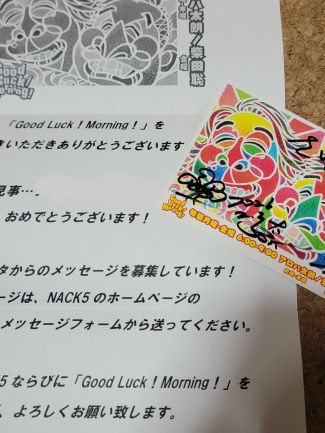 八木朗／柴田聡
金曜
Good Luck! Morning!
「Good Luck！Morning！」を
きいただきありがとうございます
見事…．
おめでとうございます！
タからのメッセージを募集しています！
ージは、NACK5 のホームページの
メッセージフォームから送ってください。
5 ならびに「Good Luck！Morning！」を
よろしくお願い致します。
毎週月曜-金曜 6:00-9:00 アロハ太朗／